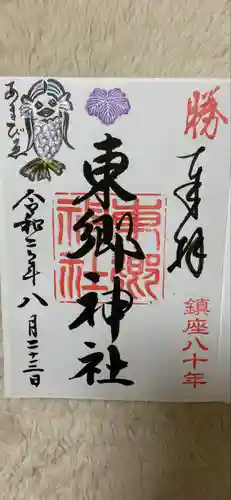 勝
奉拝
鎮座八十年
東郷神社
東郷神社
あまびゑ
令和二年八月二十三日